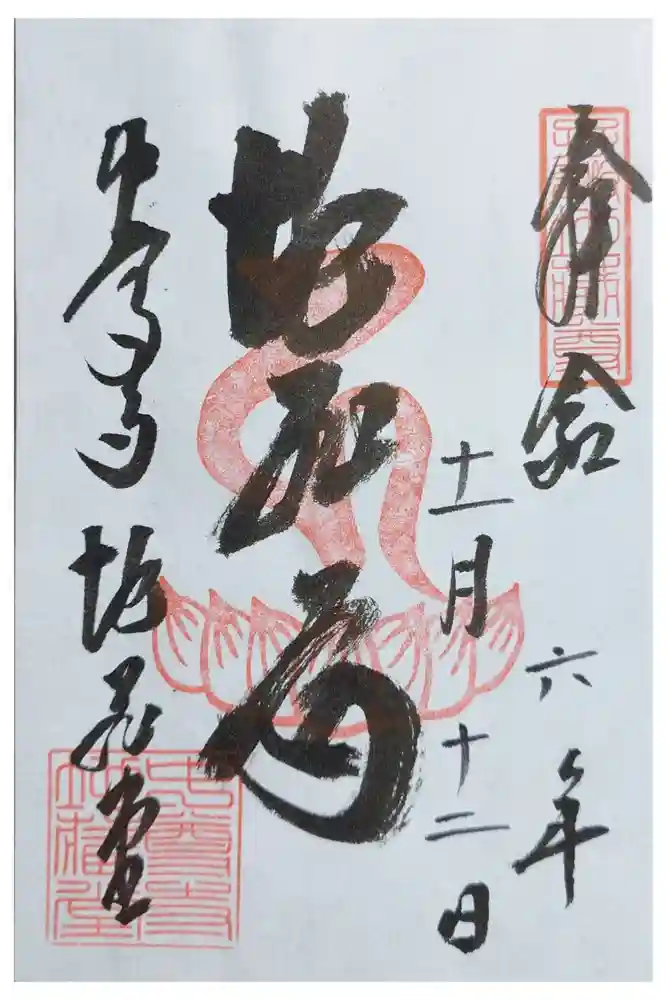 奉拝
令和六年
十一月十二日
地蔵尊
中尊寺 地蔵堂